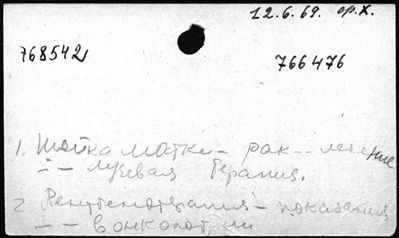 12.6.69. ор.х.
768542
766476
1. Шейка матки - рак -- лечение
- - лучевая терапия.
2 Рентгенотерапия - показания
- - в онкологии